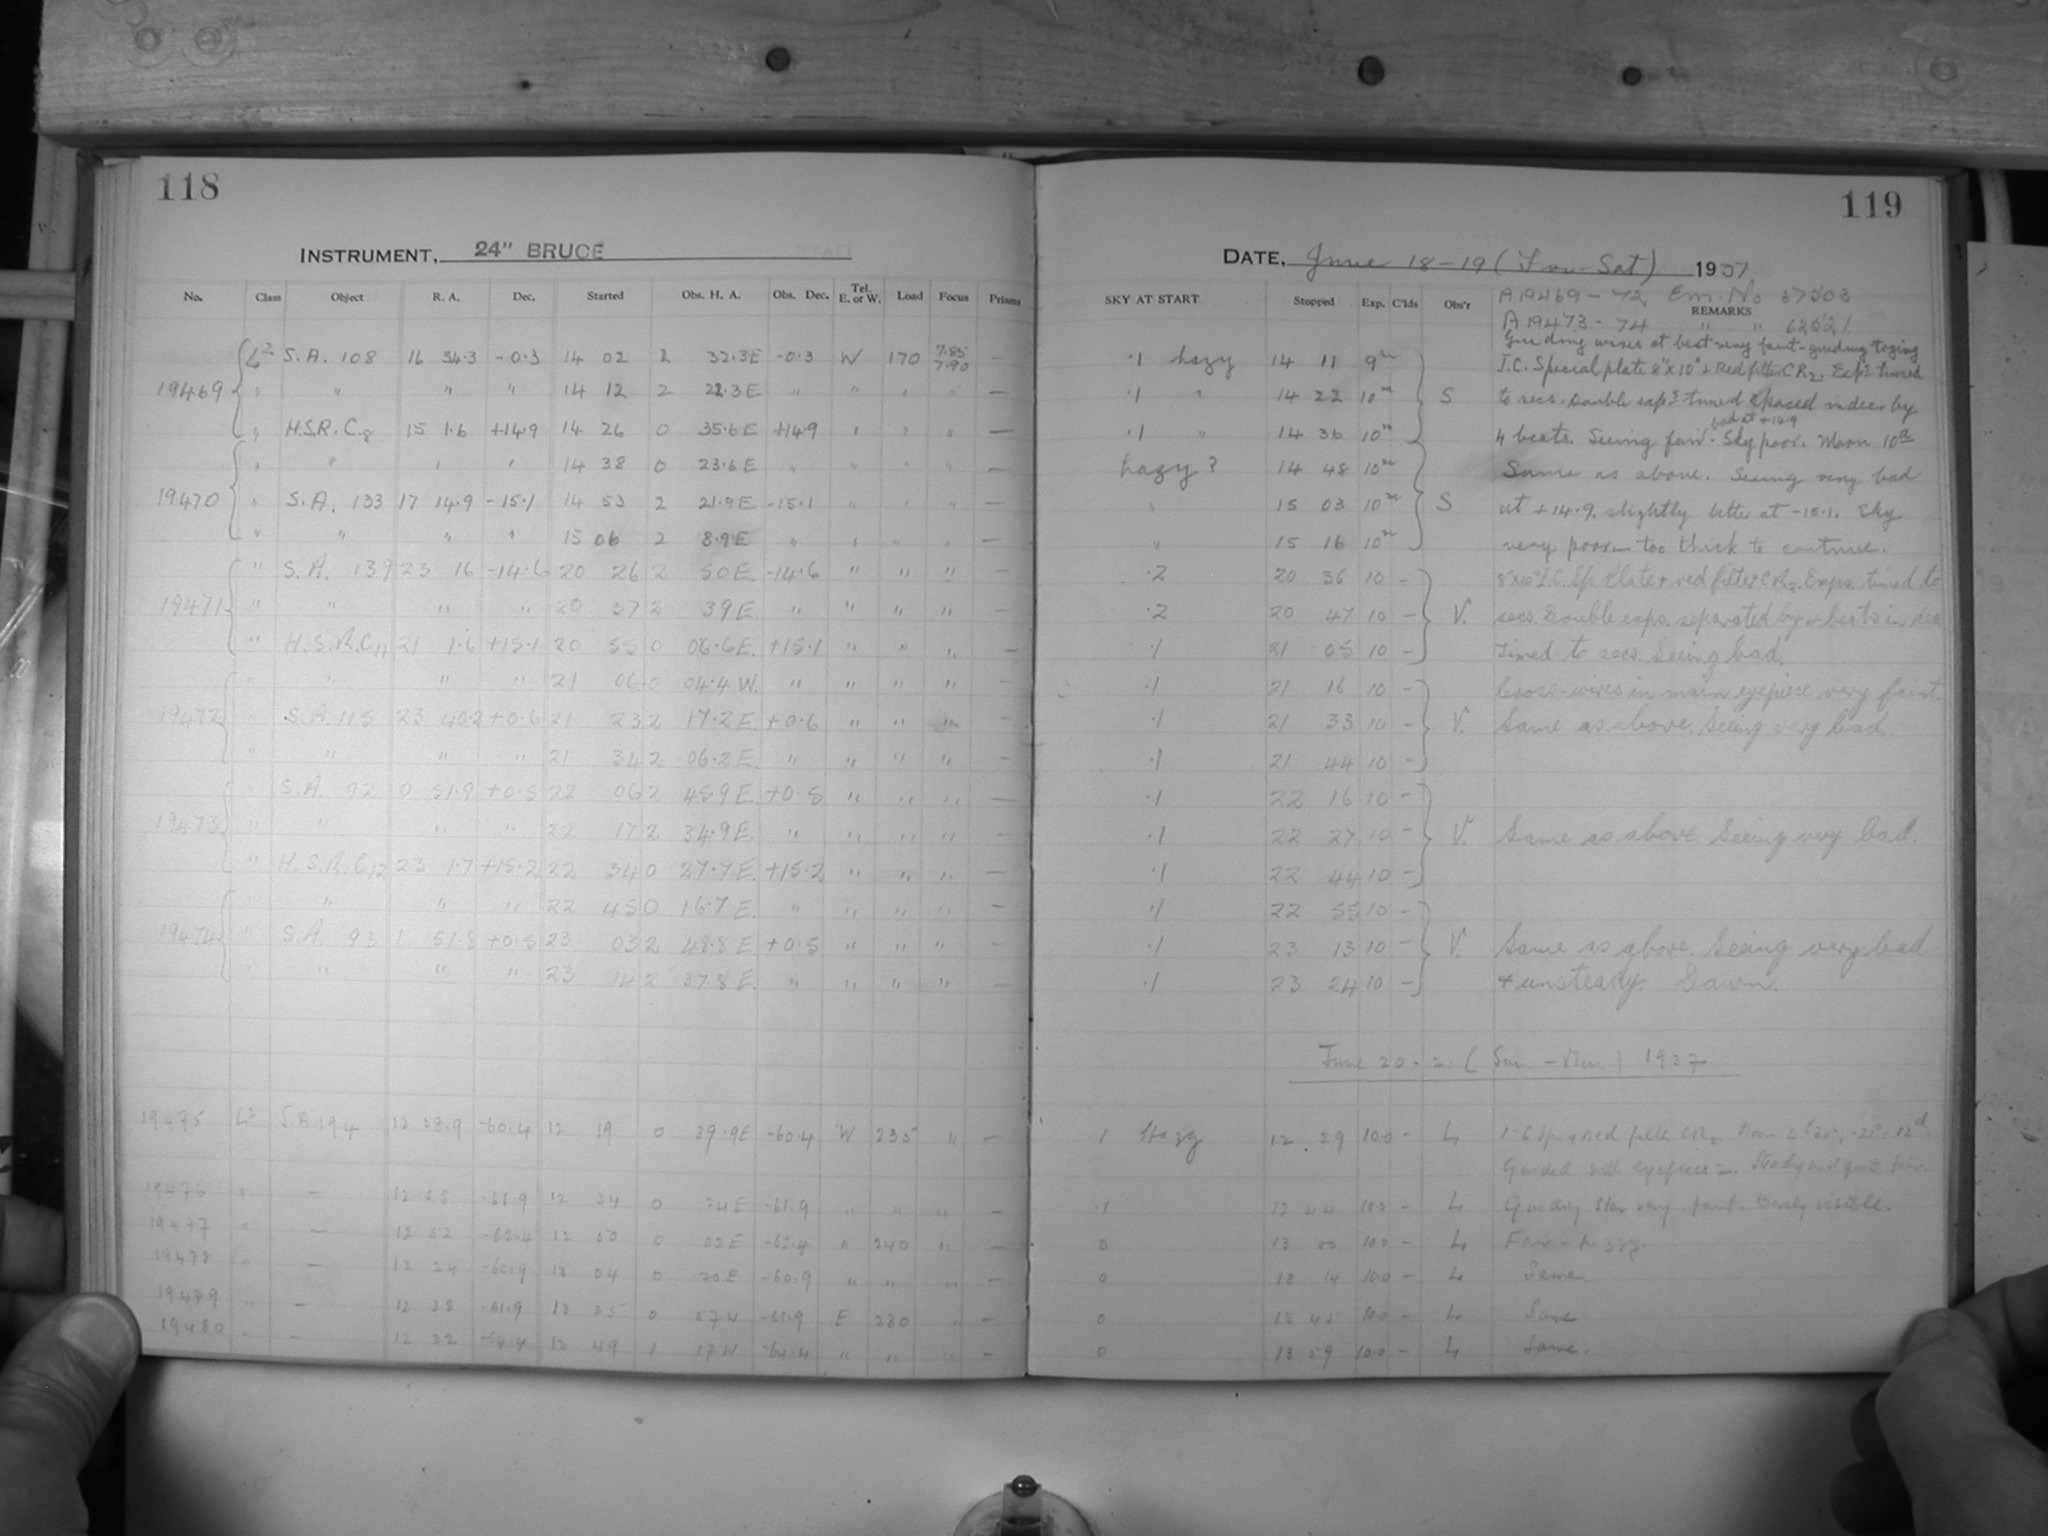 118
INSTRUMENT, 24" BRUCE
No. Class Object R. A. Dec. Started Obs. H. A. Obs. Dec. Tel. E. or W. Load Focus Prisms
L2 S.A. 108 16 34.3 -0.3 14 02 2 32.3E -0.3 W 170 7.85 7.90 -
19469 " " " " 14 12 2 22.3E " " " " -
" H.S.R.C.8 15 1.6 +14.9 14 26 0 35.6E +14.9 " " " -
" " " " 14 38 0 23.6E " " " " -
19470 " S.A. 133 17 14.9 -15.1 14 53 2 21.9E -15.1 " " " -
" " " " 15 06 2 8.9E " " " " -
" S.A. 139 23 16 -14.6 20 26 2 50E. -14.6 " " "
19471 " " " " 20 37 2 39E. " " " "
" H.S.R.C11 21 1.6 +15.1 20 55 0 06.6E. +15.1 " " " -
" " " " 21 06 0 04.4W. " " " " -
19472 " S.A. 115 23 40.2 +0.6 21 23 2 17.2E. +0.6 " " " -
" " " " 21 34 2 06.2E. " " " " -
" S.A. 92 0 51.9 +0.5 22 06 2 45.9E. +0.5 " " " -
19473 " " " " 22 17 2 34.9E. " " " " -
" H.S.R.C12 23 1.7 +15.2 22 34 0 27.7E. +15.2 " " " -
" " " " 22 45 0 16.7E. " " " " -
19474 " S.A. 93 1 51.8 +0.5 23 03 2 48.8E +0.5 " " " -
" " " " 23 14 2 37.8E. " " " " -
19475 L2 S.A. 194 12 58.9 -60.4 12 19 0 39.9E -60.4 W 235 " -
19476 " - 12 -61.9 12 34 0 24E -61.9 " " " -
19477 " - 12 52 -62.4 12 50 0 02E -62.4 " 240 " -
19478 " - 13 24 -60.9 13 04 0 20E -60.9 " " " -
19479 " - 12 38 -61.9 13 35 0 57W -61.9 E 230 " -
19480 " - 12 32 -64.4 13 49 1 17W -64.4 " " " -
119
DATE, June 18-19 (Fri-Sat) 1937
SKY AT START Stopped Exp. C'lds Obs'r REMARKS
A19469-72 Em. No 37503
A19473-74 " " 62621
Guiding wires at best very faint - guiding trying
.1 hazy 14 11 9m I.C. Special plate 8"x10" + Red filter CR2. Exps timed
.1 " 14 22 10m S to secs. Double exps timed spaced in dec. by
bad at +14.9
.1 " 14 36 10m 4 beats. Seeing fair. Sky poor. Moon 10d
hazy? 14 48 10m Same as above. Seeing very bad
" 15 03 10m S at +14.9, slightly better at -15.1. Sky
" 15 16 10m very poor - too thick to continue.
.2 20 36 10 - 8"x10" I.C. Sp. Plate + red filter CR2. Exps. timed to
.2 20 47 10 - V. secs. Double exps. separated by 4 beats in dec
.1 21 05 10 - Timed to secs. Seeing bad.
.1 21 16 10 - Cross-wires in main eyepiece very faint.
.1 21 33 10 - V. Same as above. Seeing very bad.
.1 21 44 10 -
.1 22 16 10 -
.1 22 27 10 - V. Same as above. Seeing very bad.
.1 22 44 10 -
.1 22 55 10 -
.1 23 13 10 - V. Same as above. Seeing very bad
.1 23 24 10 - + unsteady. Dawn.
June 20-21 (Sun - Mon) 1937
.1 Hazy 12 29 10.0 - L I.C. Sp. + red filter CR2. Moon 12d
Guided with eyepiece 2. Steady and quite fair.
.1 12 44 10.0 - L Guiding star very faint. Barely visible.
0 13 00 10.0 - L Fair -
0 13 14 10.0 - L Same
0 13 45 10.0 - L Same
0 13 59 10.0 - L Same.